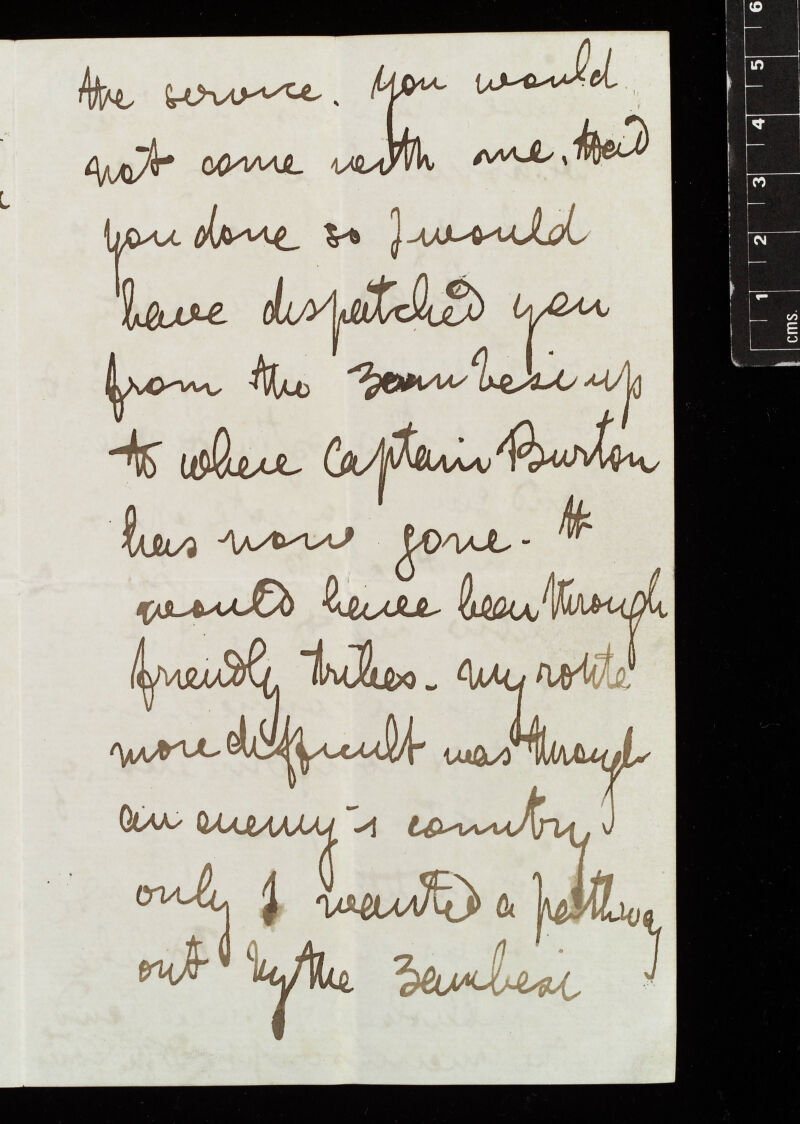 the service. You would
not come with me. Had
you done so I would
have dispatched you
from the Zambesi up
to where Captain Burton
has now gone - It
would have been through
friendly tribes - My route
more difficult was through
an enemy's country
only I wanted a pathway
out by the Zambesi
6
5
4
3
2
1
cms.